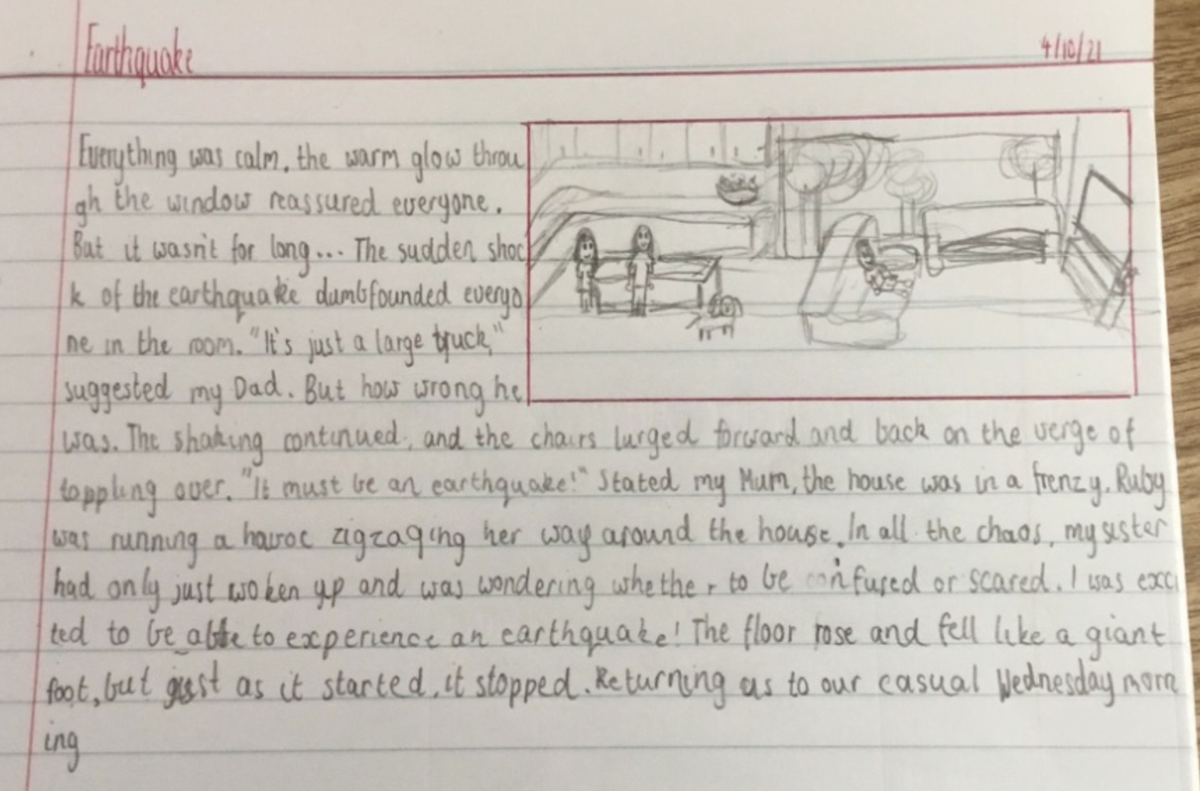 Earthquake
4/10/21
Everything was calm, the warm glow throu
gh the window reassured everyone.
But it wasn't for long... The sudden shoc
k of the earthquake dumbfounded everyo
ne in the room. "It's just a large truck,"
suggested my Dad. But how wrong he
was. The shaking continued, and the chairs lurged forward and back on the verge of
toppling over. "It must be an earthquake!" Stated my Mum, the house was in a frenzy. Ruby
was running a havoc zigzaging her way around the house. In all the chaos, my sister
had only just woken up and was wondering whether to be confused or scared. I was exci
ted to be able to experience an earthquake! The floor rose and fell like a giant
foot, but just as it started, it stopped. Returning us to our casual Wednesday morn
ing